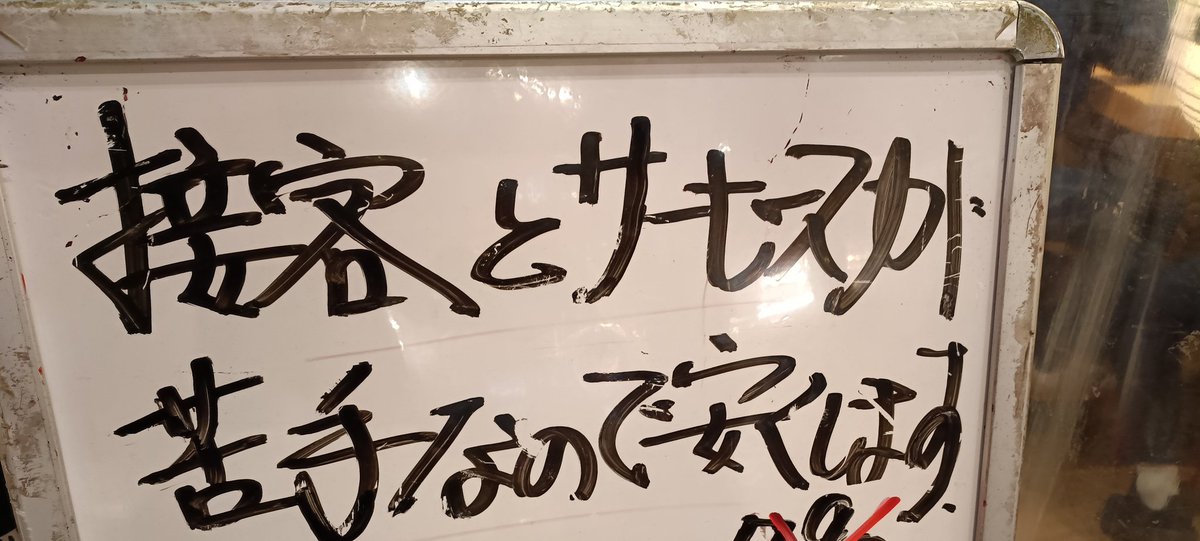 接客とサービスが
苦手なので安します